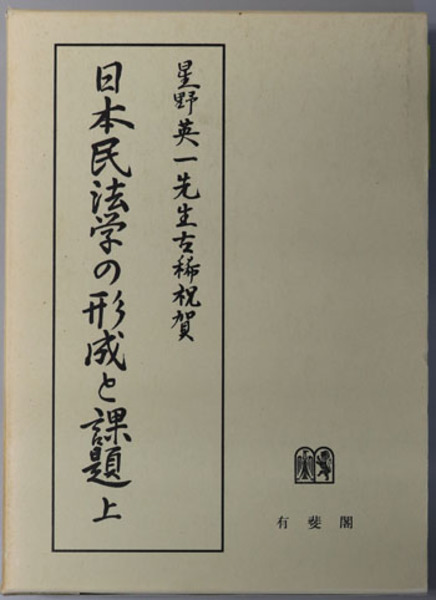 星野英一先生古稀祝賀
日本民法学の形成と課題 上
有斐閣